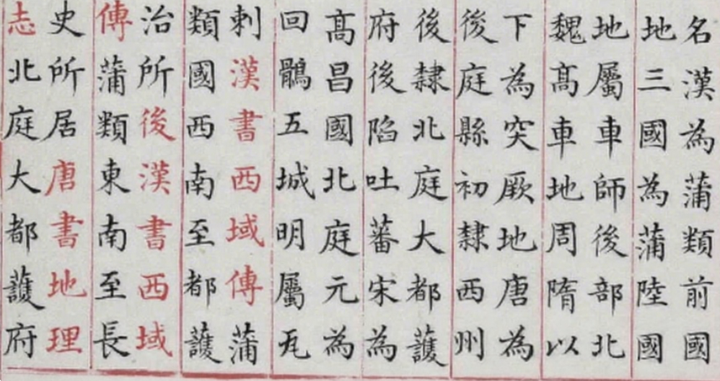 名漢為蒲類前國
地三國為蒲陸國
地屬車師後部北
魏髙車地周隋以
下為突厥地唐為
後庭縣初隸西州
後隸北庭大都䕶
府後陷吐蕃宋為
髙昌國北庭元為
回鶻五城明屬瓦
剌漢書西域傳蒲
類國西南至都䕶
治所後漢書西域
傳蒲類東南至長
史所居唐書地理
志北庭大都䕶府